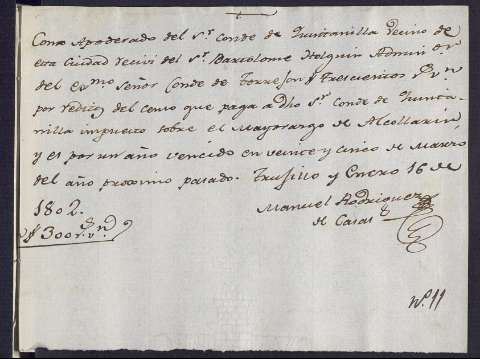 Como Apoderado del Sr. Conde de Quintanilla Vecino de
esta Ciudad recivi del Sr. Bartolome Holguin Admin.or
del exmo. Señor Conde de Torrejon Trescientos rs. vn
por reditos del censo que paga a dho Sr. Conde de Quinta-
nilla impuesto sobre el Mayorazgo de Alcollarin,
y es por un año vencido en veinte y cinco de Marzo
del año proximo pasado. Truxillo y Enero 16 de
1802.
Manuel Rodriguez
de Casas
300 rs. vn
No. 11